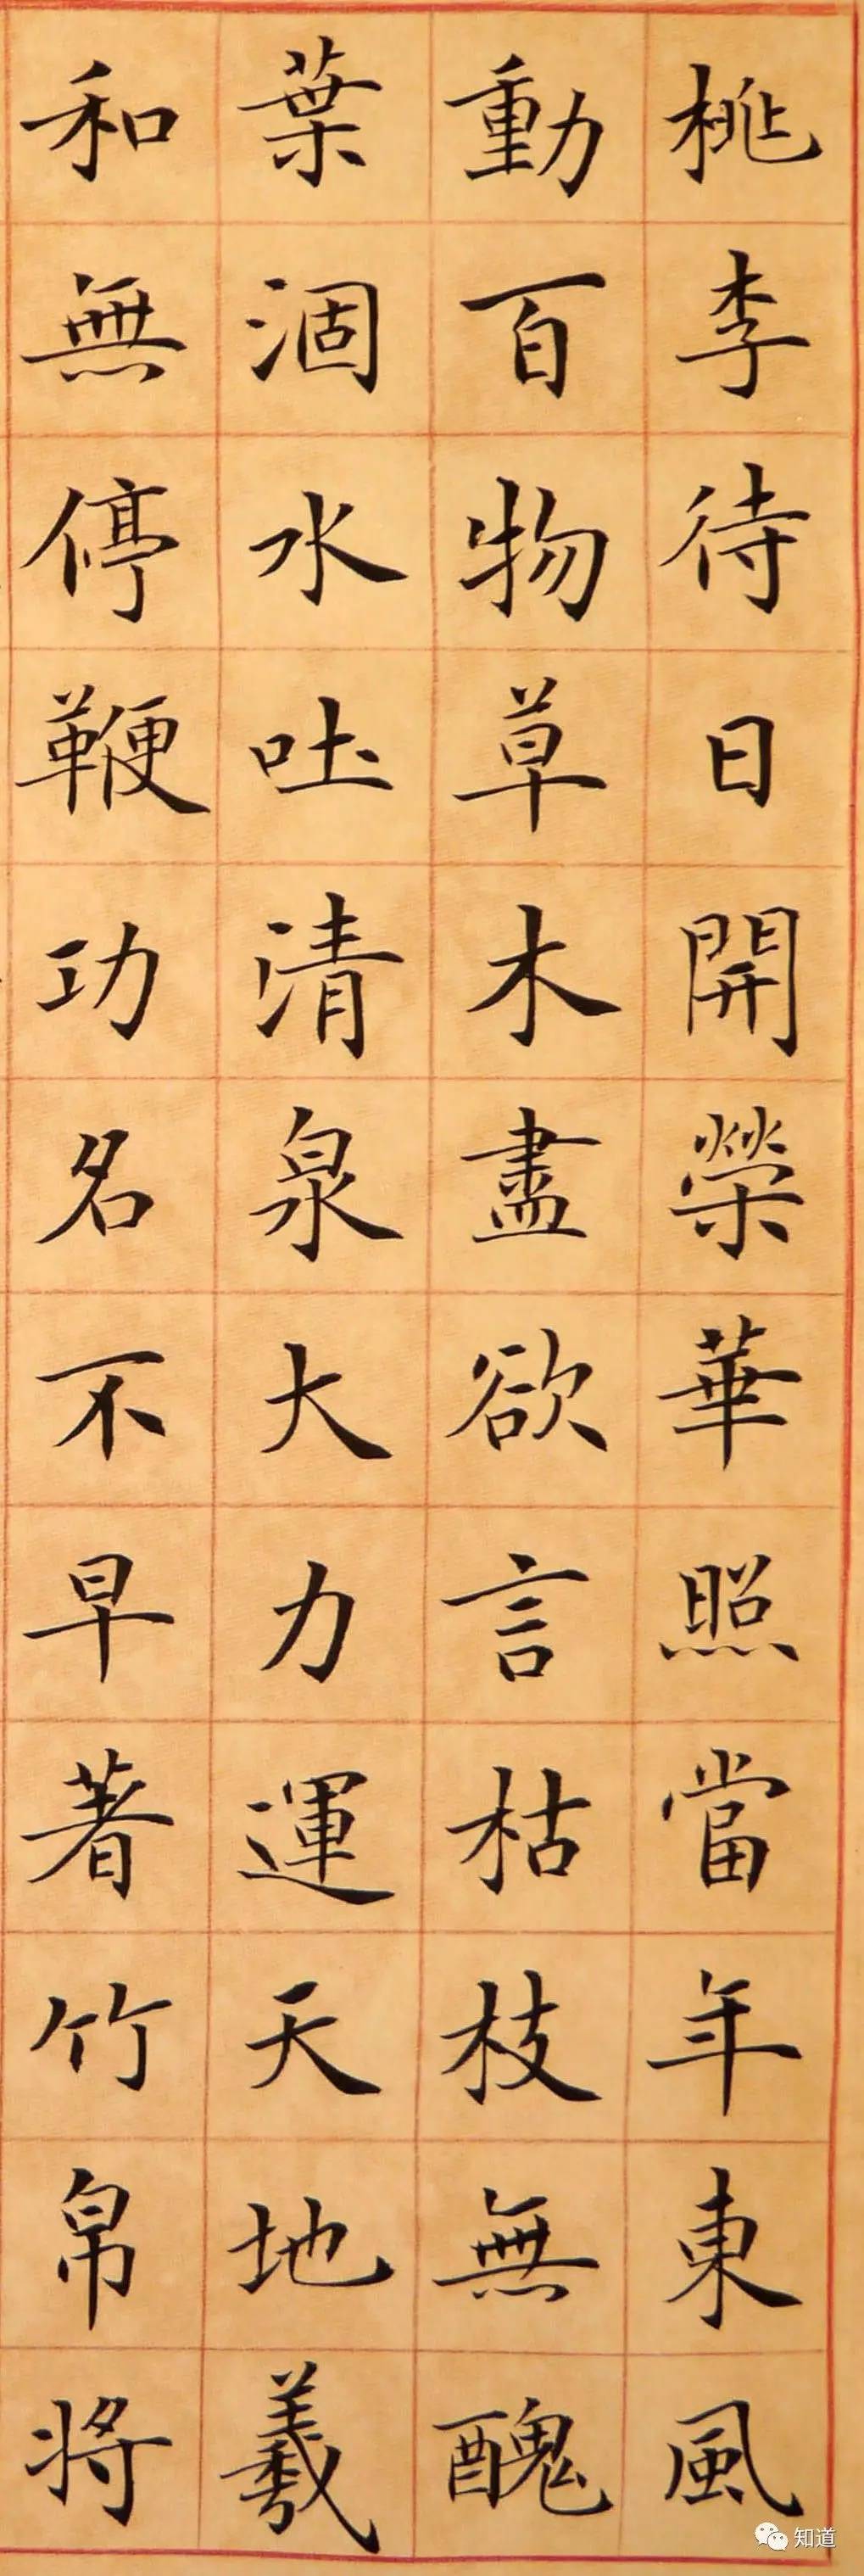 桃李待日開榮華照當年東風
動百物草木盡欲言枯枝無醜
葉涸水吐清泉大力運天地羲
和無停鞭功名不早著竹帛將
知道